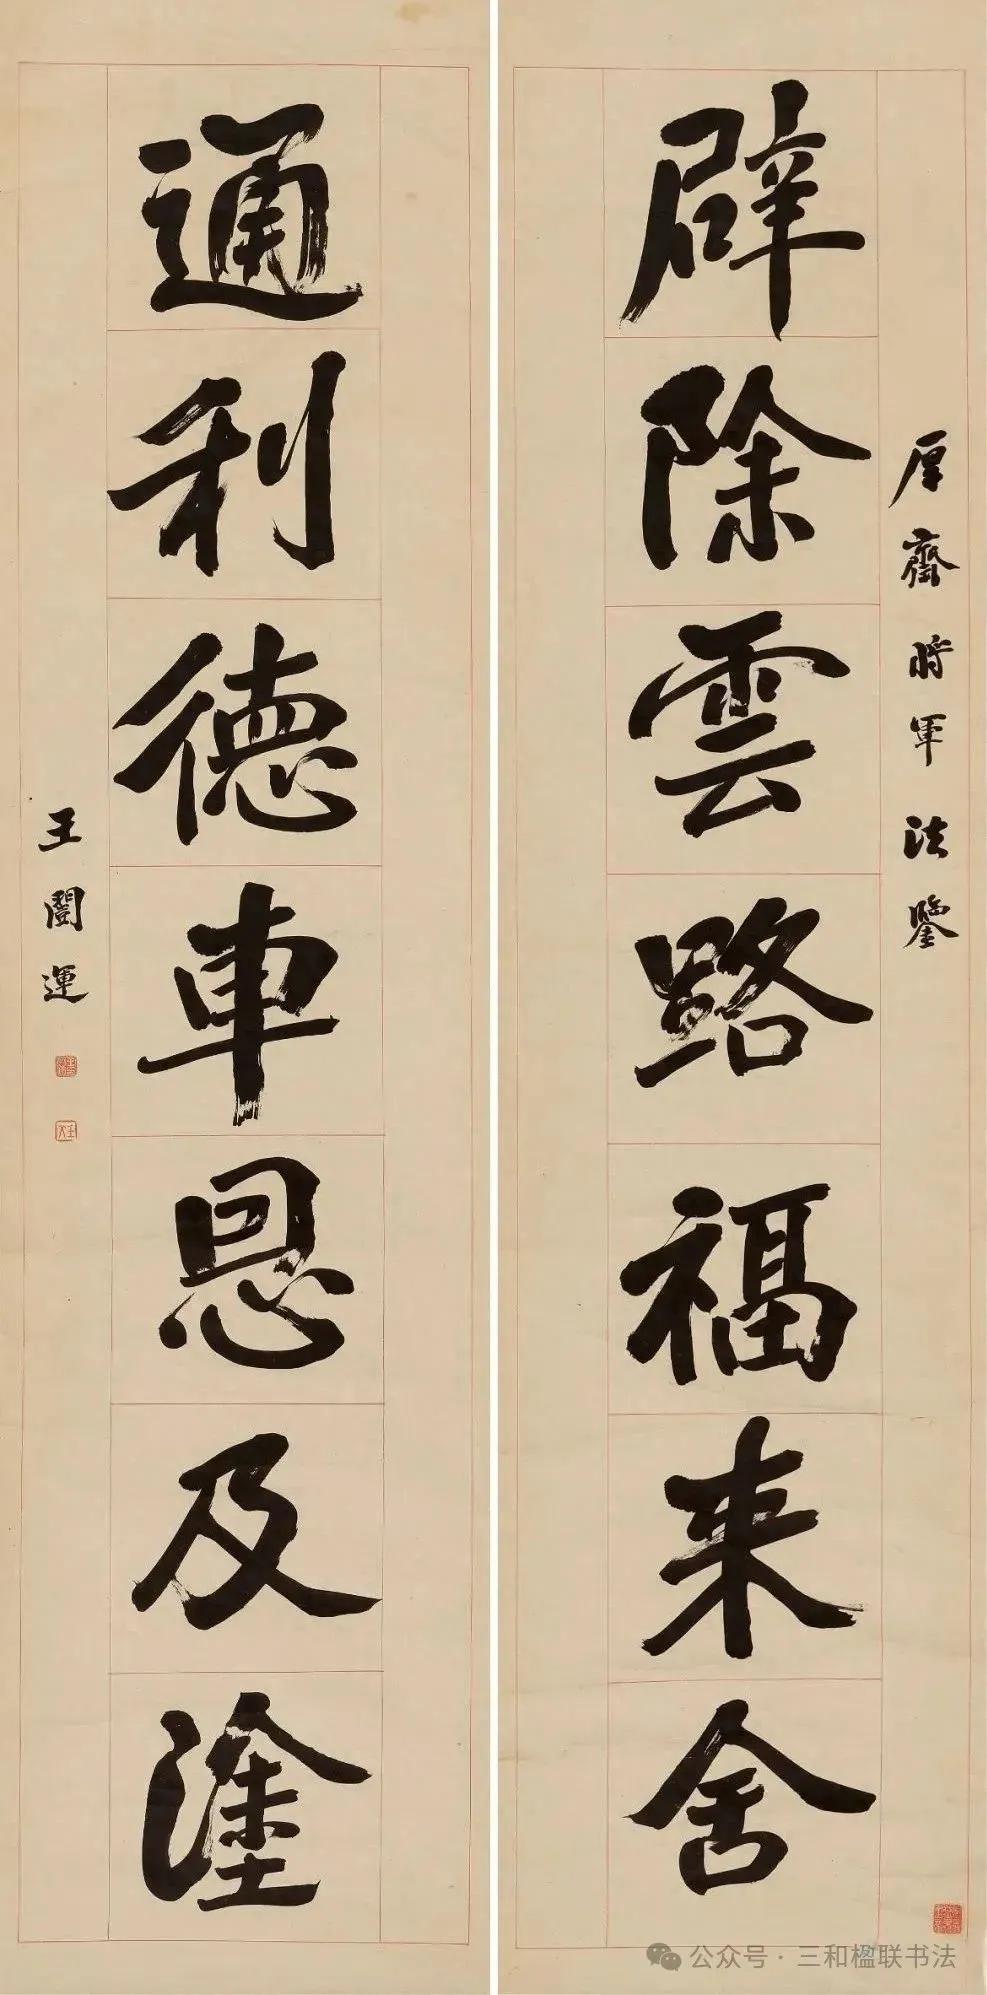 厚齋將軍法鑒
辟除雲路福来舍
通利德車恩及塗
王闓運
公众号·三和楹联书法